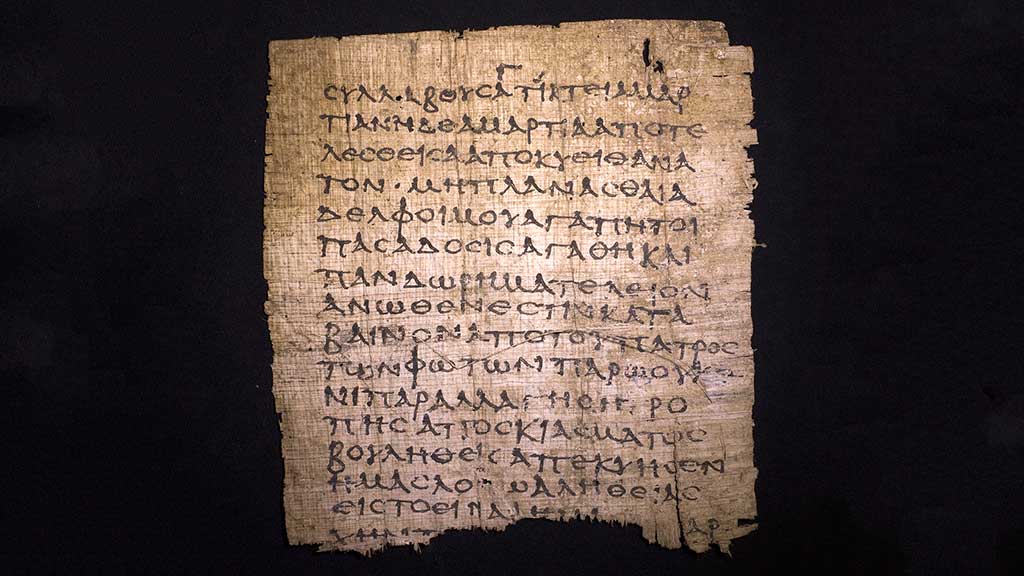 Γ
ϹΥΛΛΑΒΟΥϹΑΤΙΚΤΕΙΑΜΑΡ
ΤΙΑΝΗΔΕΑΜΑΡΤΙΑΑΠΟΤΕ
ΛΕϹΘΕΙϹΑΑΠΟΚΥΕΙΘΑΝΑ
ΤΟΝ·ΜΗΠΛΑΝΑϹΘΑΙΑ
ΔΕΛΦΟΙΜΟΥΑΓΑΠΗΤΟΙ
ΠΑϹΑΔΟϹΙϹΑΓΑΘΗΚΑΙ
ΠΑΝΔΩΡΗΜΑΤΕΛΕΙΟΝ
ΑΝΩΘΕΝΕϹΤΙΝΚΑΤΑ
ΒΑΙΝΟΝΑΠΟΤΟΥΠΑΤΡΟϹ
ΤΩΝΦΩΤΩΝΠΑΡΩΟΥΚ
ΝΙΠΑΡΑΛΛΑΓΗϹΗΤΡΟ
ΠΗϹΑΠΟϹΚΙΑϹΜΑΤΟϹ
ΒΟΥΛΗΘΕΙϹΑΠΕΚΥΗϹΕΝ
ΗΜΑϹΛΟΓΩΑΛΗΘΕΙΑϹ
ΕΙϹΤΟΕΙΝΑΙ ΑΡ